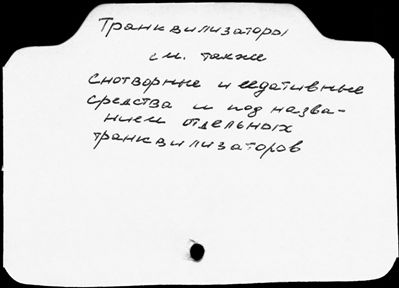 Транквилизаторы
см. также
снотворные и седативные
средства и под назва-
нием отдельных
транквилизаторов